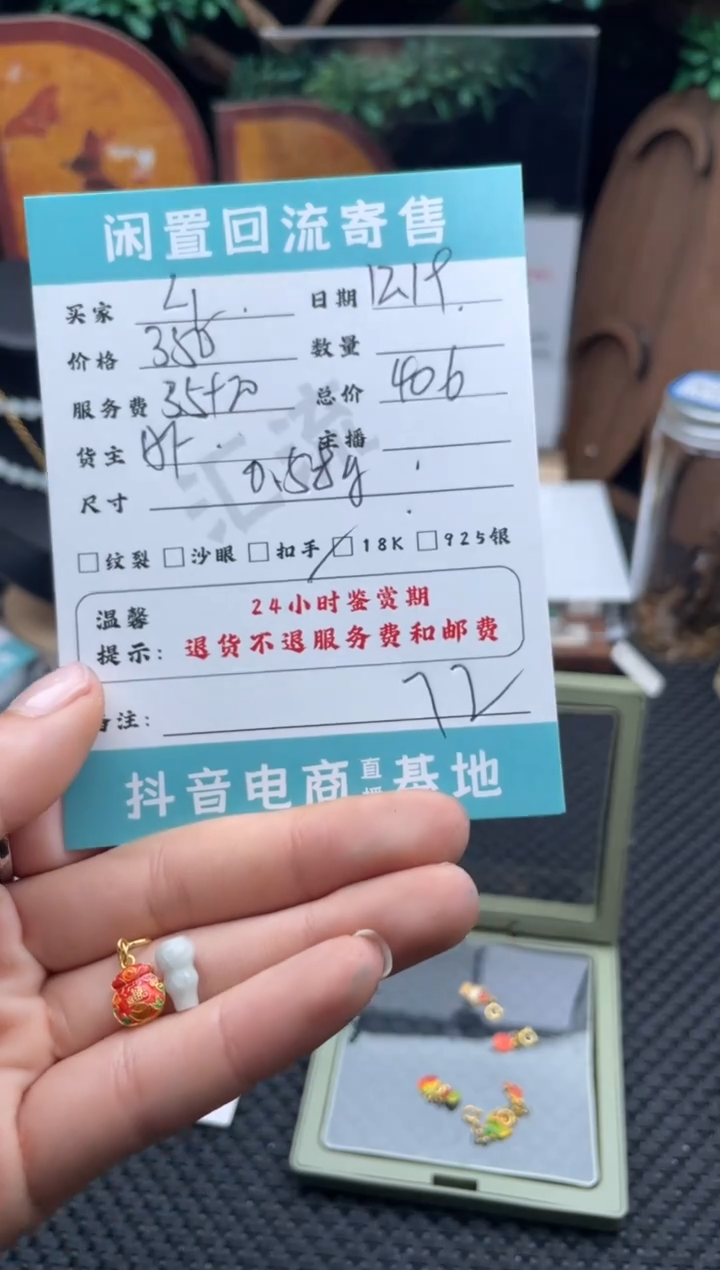 闲置回流寄售
买家 日期 1219
价格 358 数量
服务费 35+20 总价 406
货主 主播
尺寸 0.58g
纹裂 沙眼 扣手 18K 925银
温馨 24小时鉴赏期
提示: 退货不退服务费和邮费
备注: 72
抖音电商直播基地
汇流